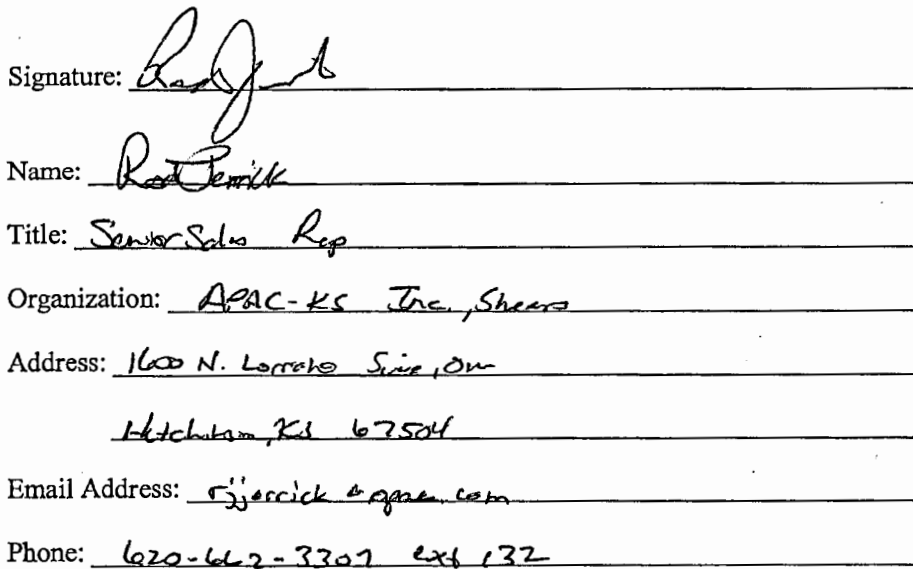 Signature:
Name: Rod Jerrick
Title: Senior Sales Rep
Organization: APAC-KS Inc., Shears
Address: 1600 N. Lorraine
Hutchinson, KS 67504
Email Address:
Phone: 620-662-3307 ext 132